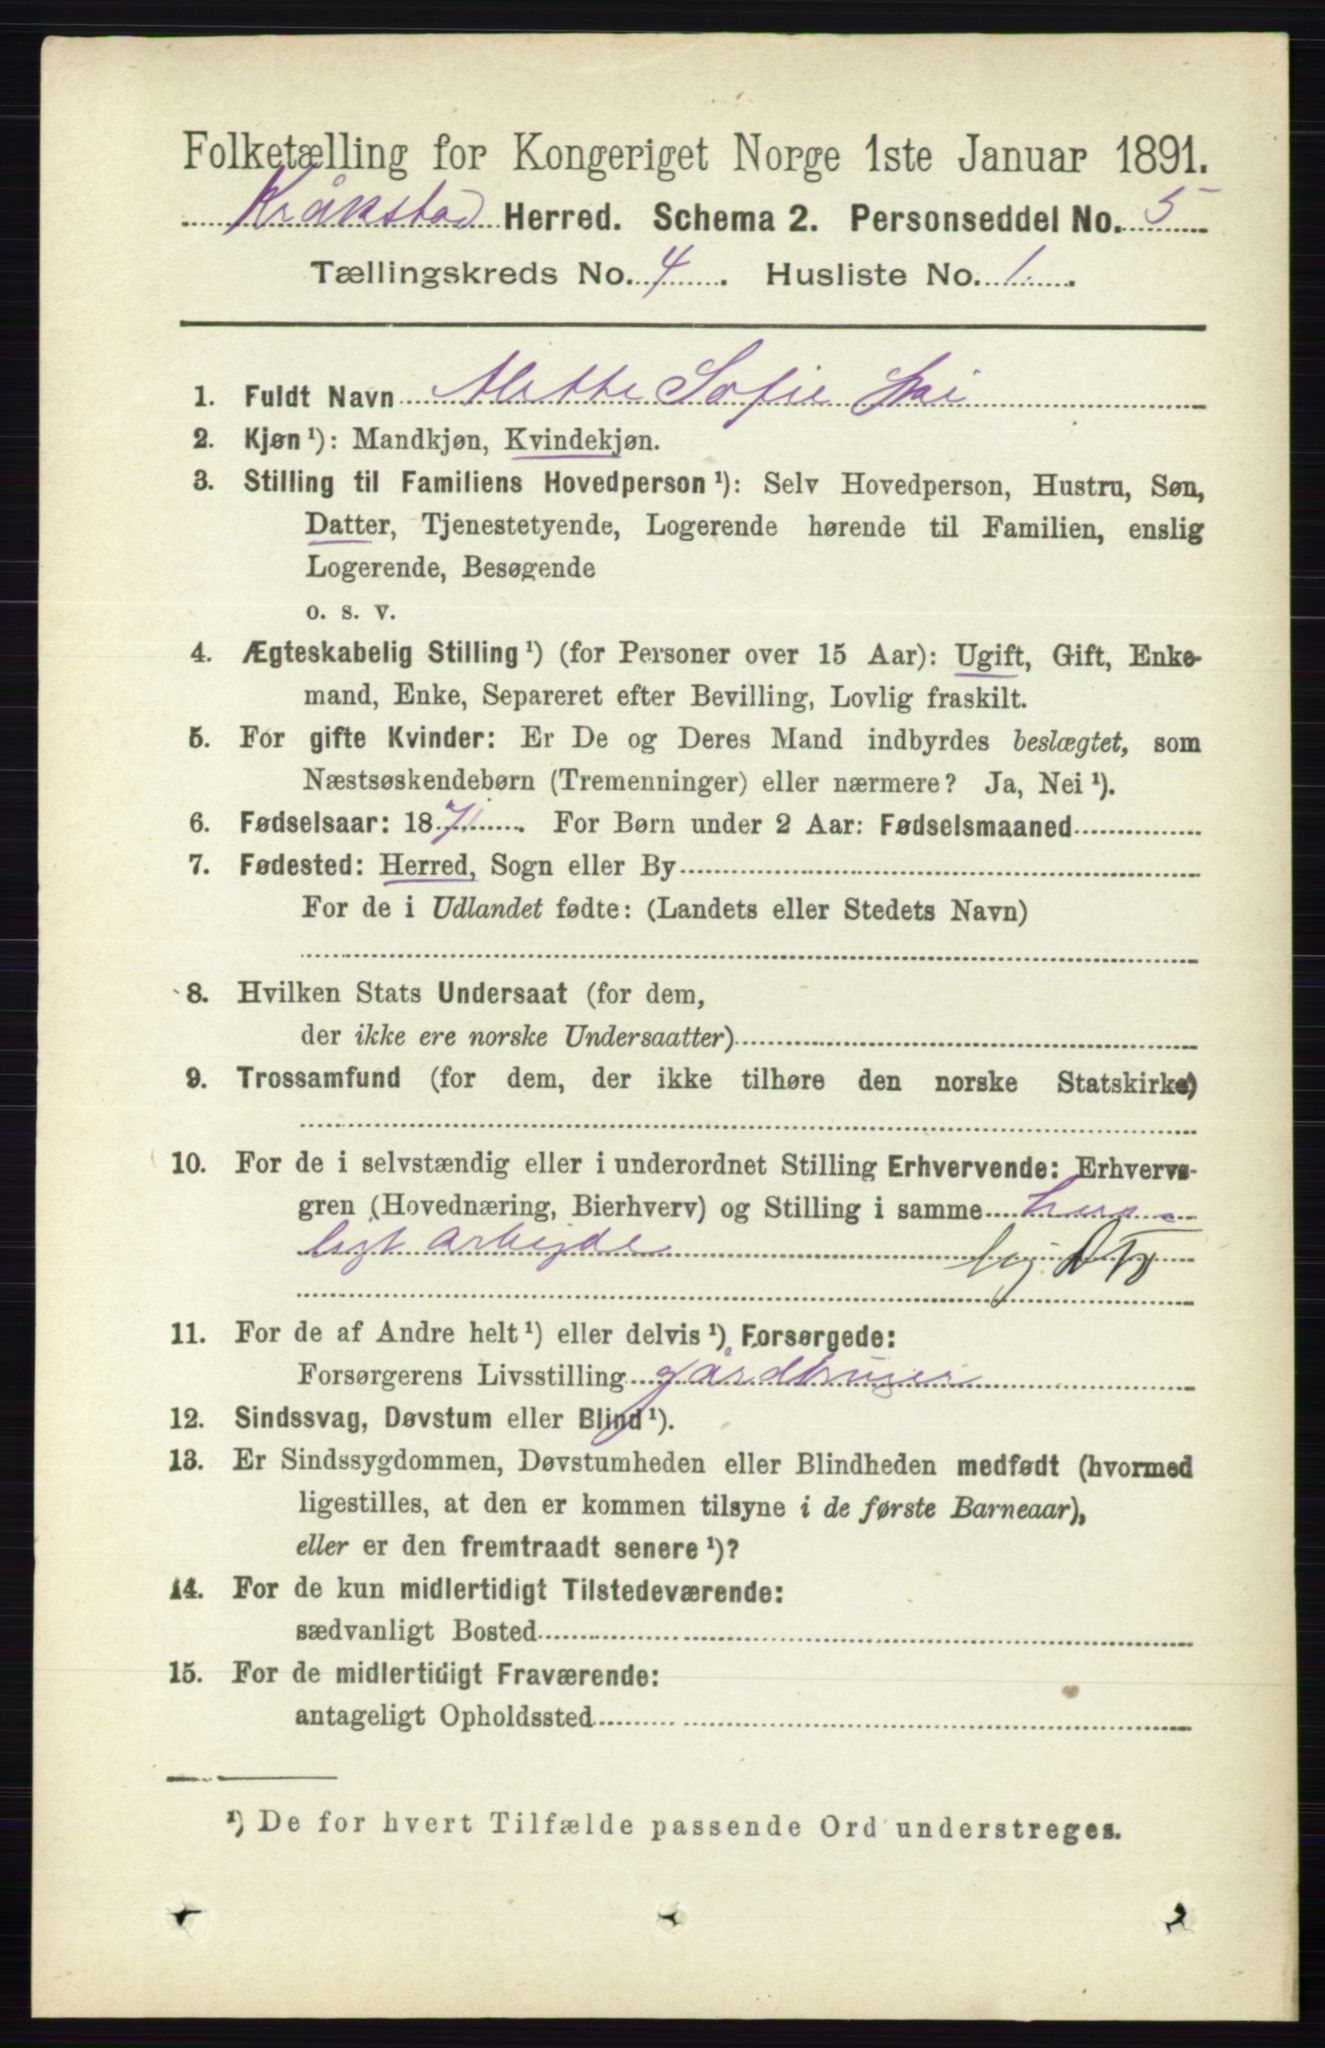 Folketælling for Kongeriget Norge 1ste Januar 1891.
Kråkstad Herred. Schema 2. Personseddel No. 5
Tællingskreds No. 4. Husliste No. 1.
1. Fuldt Navn Alette Sofie Ski
2. Kjøn ¹): Mandkjøn, Kvindekjøn.
3. Stilling til Familiens Hovedperson ¹): Selv Hovedperson, Hustru, Søn,
Datter, Tjenestetyende, Logerende hørende til Familien, enslig
Logerende, Besøgende
o. s. v.
4. Ægteskabelig Stilling ¹) (for Personer over 15 Aar): Ugift, Gift, Enke-
mand, Enke, Separeret efter Bevilling, Lovlig fraskilt.
5. For gifte Kvinder: Er De og Deres Mand indbyrdes beslægtet, som
Næstsøskendebørn (Tremenninger) eller nærmere? Ja, Nei ¹).
6. Fødselsaar: 1871. For Børn under 2 Aar: Fødselsmaaned
7. Fødested: Herred, Sogn eller By
For de i Udlandet fødte: (Landets eller Stedets Navn)
8. Hvilken Stats Undersaat (for dem,
der ikke ere norske Undersaatter)
9. Trossamfund (for dem, der ikke tilhøre den norske Statskirke)
10. For de i selvstændig eller i underordnet Stilling Erhvervende: Erhvervs-
gren (Hovednæring, Bierhverv) og Stilling i samme hus-
ligt arbejde
11. For de af Andre helt ¹) eller delvis ¹) Forsørgede:
Forsørgerens Livsstilling gårdbruger
12. Sindssvag, Døvstum eller Blind ¹).
13. Er Sindssygdommen, Døvstumheden eller Blindheden medfødt (hvormed
ligestilles, at den er kommen tilsyne i de første Barneaar),
eller er den fremtraadt senere ¹)?
14. For de kun midlertidigt Tilstedeværende:
sædvanligt Bosted
15. For de midlertidigt Fraværende:
antageligt Opholdssted
¹) De for hvert Tilfælde passende Ord understreges.